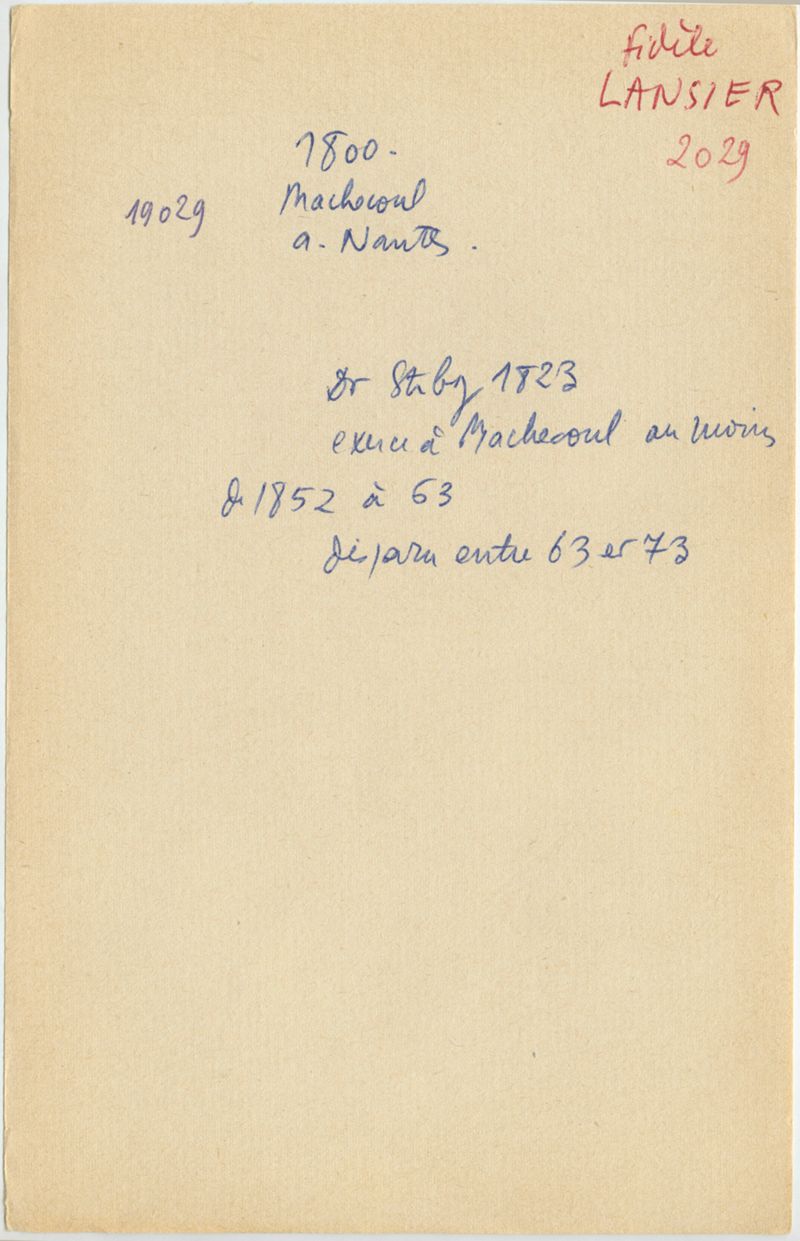 fidèle
LANSIER
2029
1800 -
19029
Machecoul
a. Nantes.
Dr Stbg 1823
exerce à Machecoul au moins
de 1852 à 63
disparu entre 63 et 73